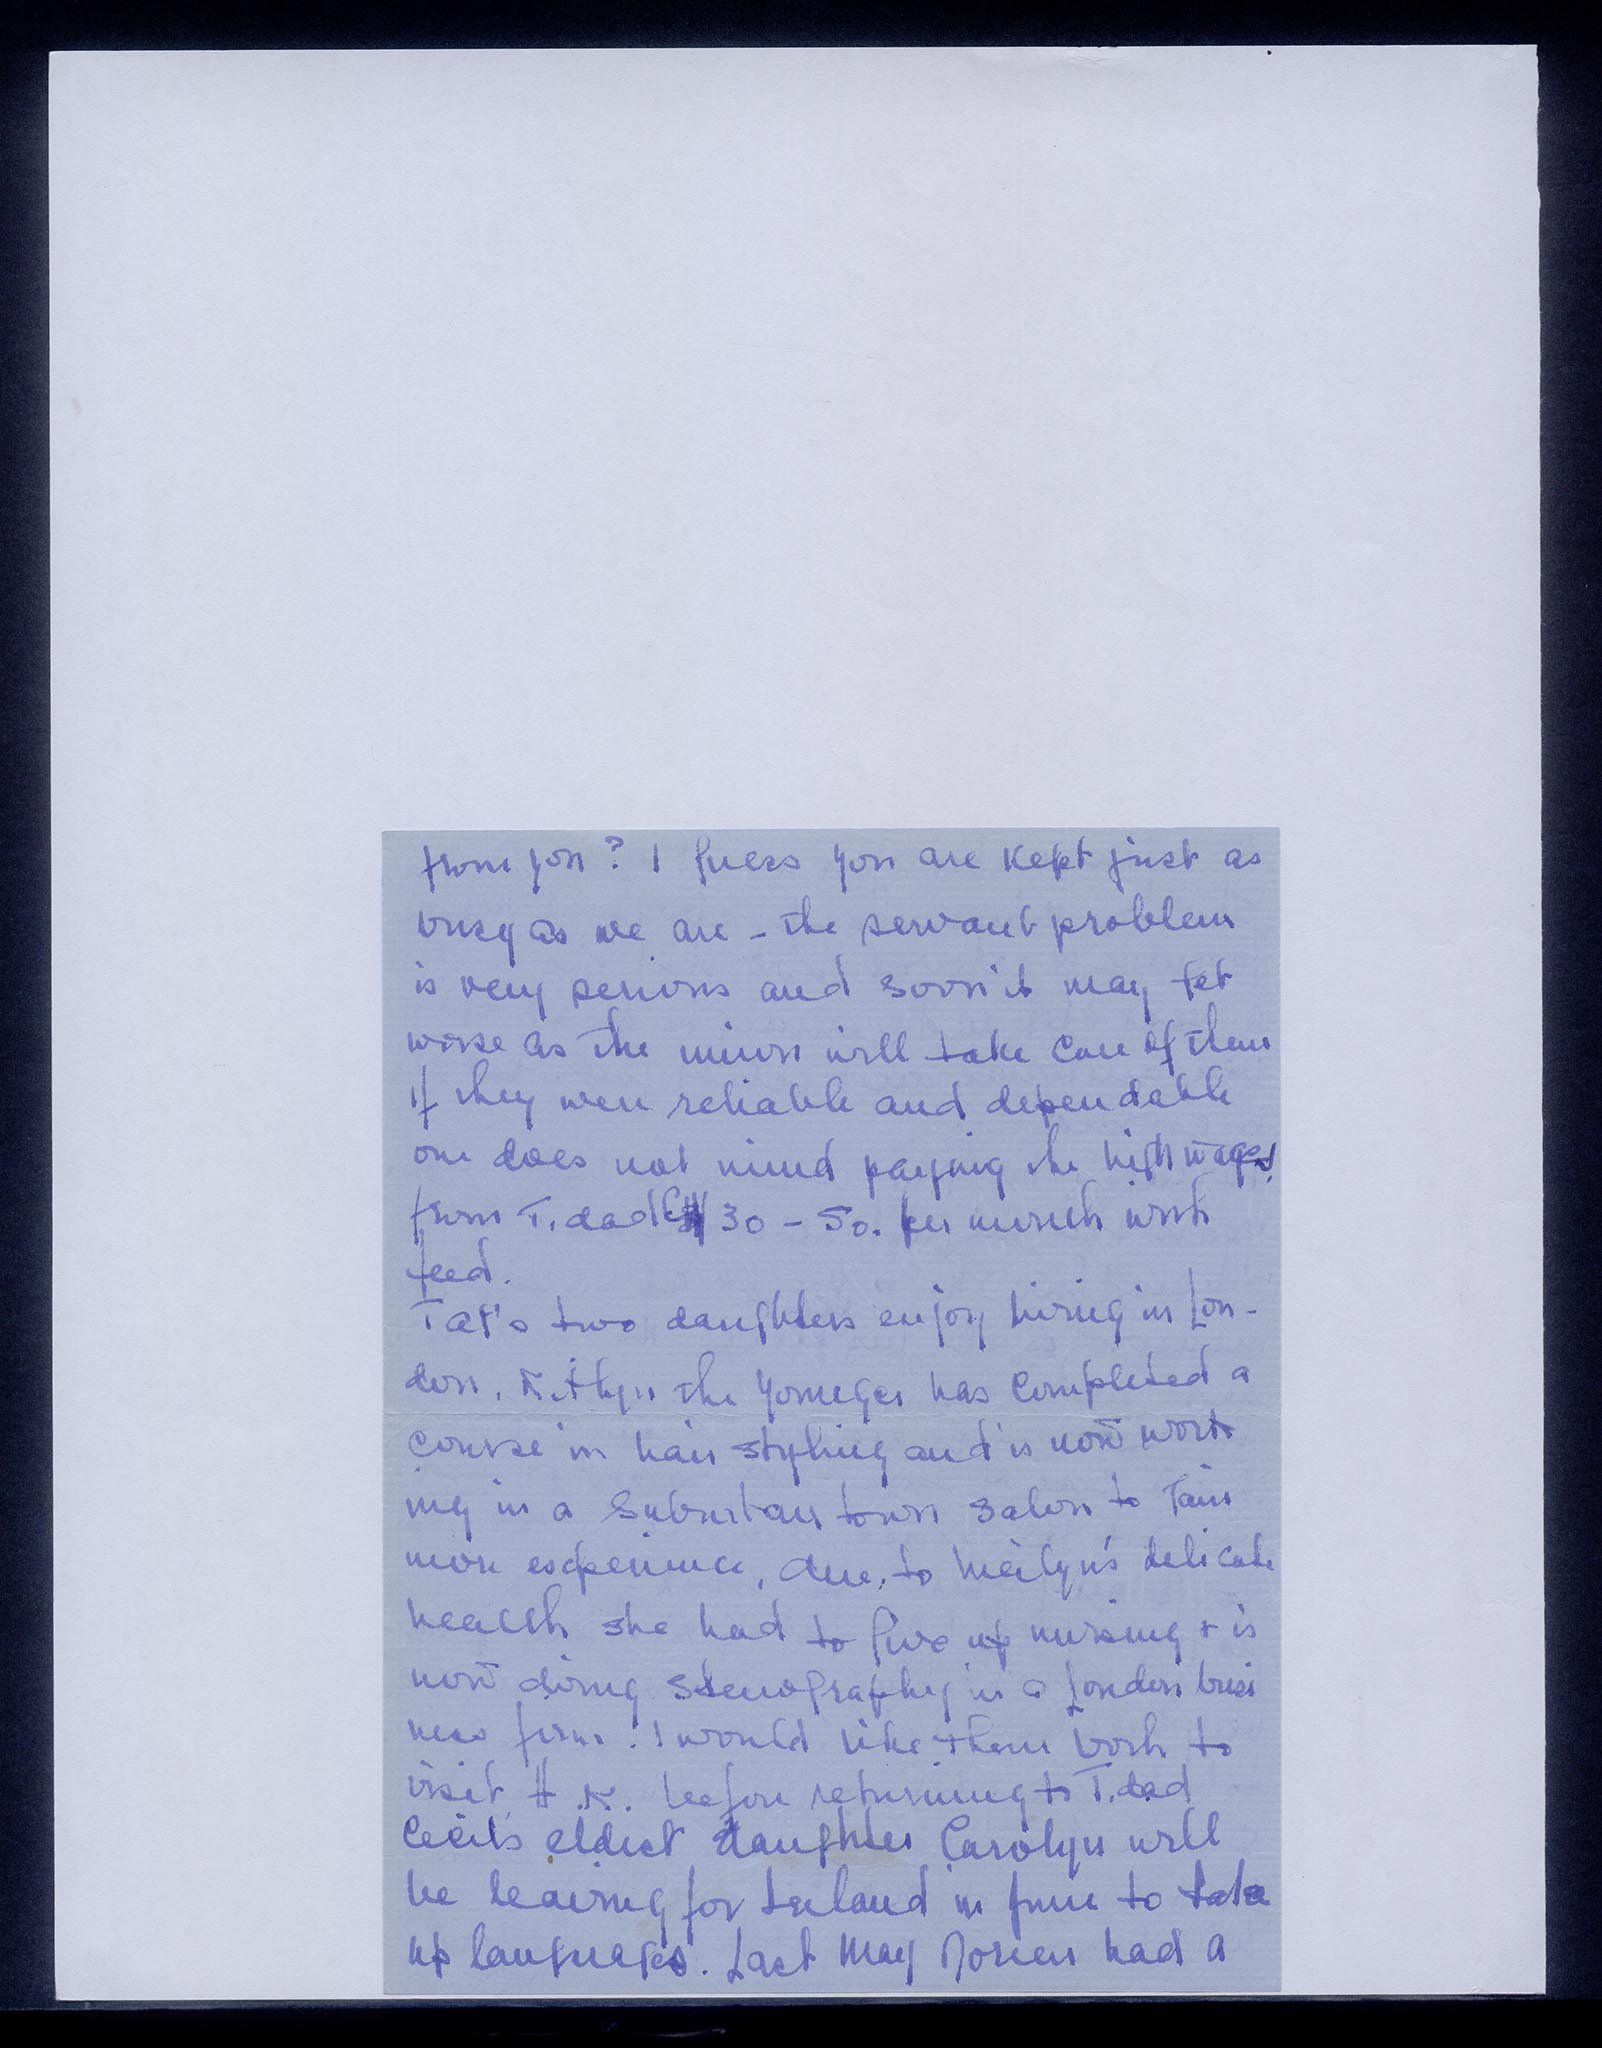 from you? I guess you are kept just as
busy as we are - the servant problem
is very serious and soon it may get
worse as the union will take care of them
if they were reliable and dependable
one does not mind paying the high wages
from T.dad $30 - 50. per month with
feed.
Tat's two daughters enjoy living in Lon-
don. Kitlyn the younger has completed a
course in hair styling and is now work
ing in a suburban town salon to gain
more experience, due to Meilyn's delicate
health she had to give up nursing + is
now doing stenography in a London busi
ness firm. I would like them both to
visit H.K. before returning to T.dad
Cecil's eldest daughter Carolyn will
be leaving for Ireland in June to take
up languages. Last May Doreen had a